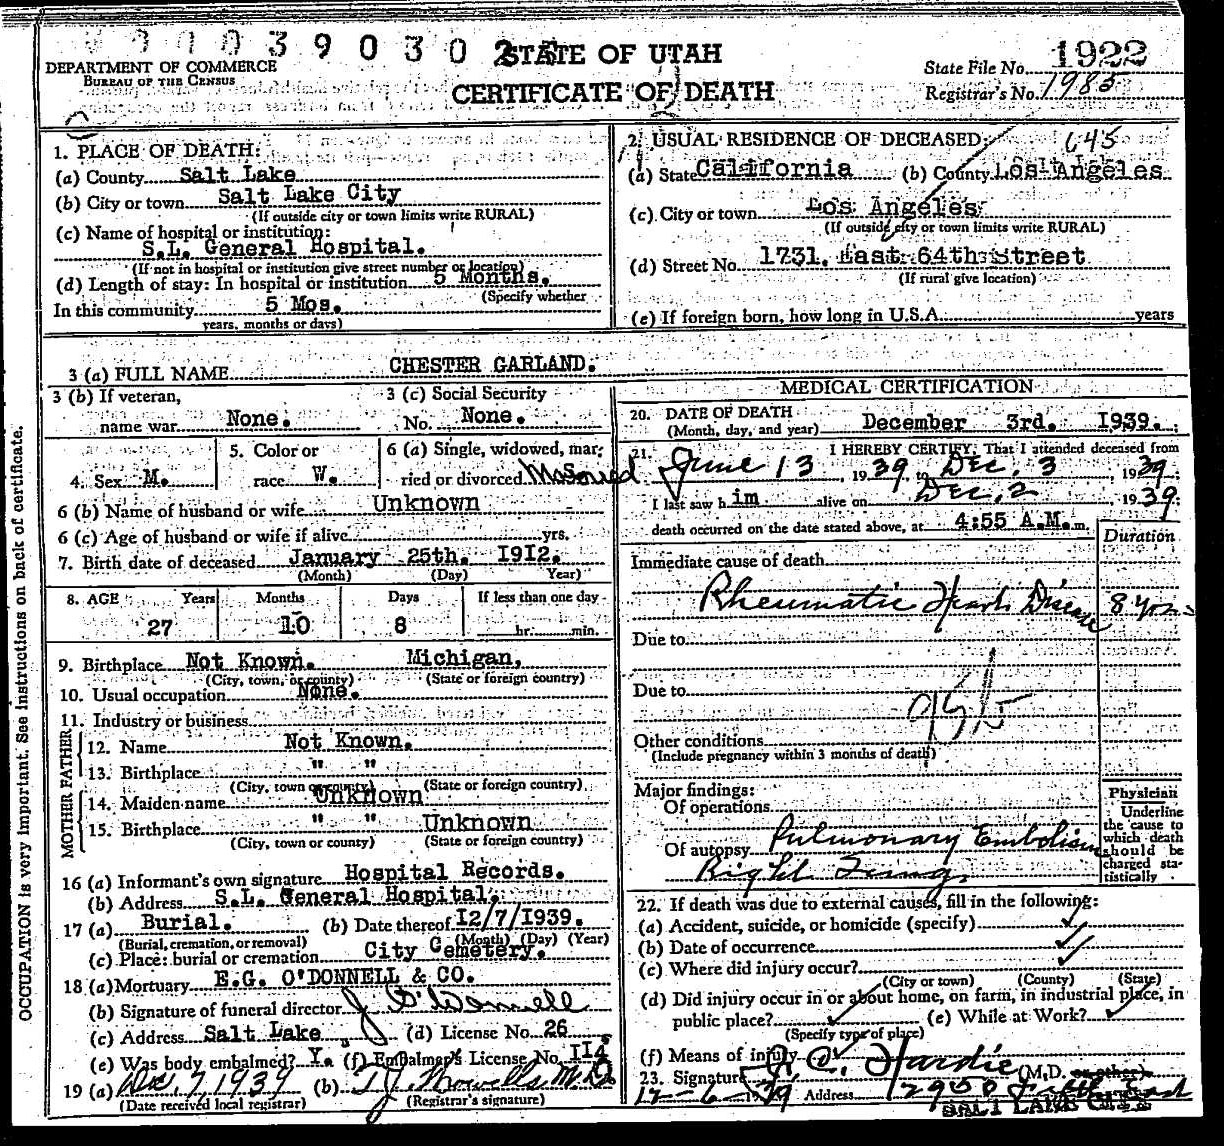 39030
STATE OF UTAH
1922
DEPARTMENT OF COMMERCE
BUREAU OF THE CENSUS
State File No.
CERTIFICATE OF DEATH
Registrar's No. 1985
1. PLACE OF DEATH:
(a) County Salt Lake
(b) City or town Salt Lake City
(If outside city or town limits write RURAL)
(c) Name of hospital or institution:
S.L. General Hospital.
(If not in hospital or institution give street number or location)
(d) Length of stay: In hospital or institution 5 Months.
(Specify whether
In this community 5 Mos.
years, months or days)
2. USUAL RESIDENCE OF DECEASED: 645
(a) State California (b) County Los Angeles
(c) City or town Los Angeles
(If outside city or town limits write RURAL)
(d) Street No. 1731. East 64th Street
(If rural give location)
(e) If foreign born, how long in U.S.A. years
3 (a) FULL NAME CHESTER GARLAND.
3 (b) If veteran,
name war None.
3 (c) Social Security
No. None.
4. Sex M.
5. Color or
race W.
6 (a) Single, widowed, mar-
ried or divorced
6 (b) Name of husband or wife Unknown
6 (c) Age of husband or wife if alive yrs.
7. Birth date of deceased January 25th. 1912.
(Month) (Day) Year)
8. AGE Years Months Days If less than one day
27 10 8 hr. min.
9. Birthplace Not Known. Michigan.
(City, town, or county) (State or foreign country)
10. Usual occupation None.
11. Industry or business
FATHER
12. Name Not Known.
13. Birthplace " "
(City, town or county) (State or foreign country)
MOTHER
14. Maiden name Unknown
15. Birthplace " " Unknown
(City, town or county) (State or foreign country)
16 (a) Informant's own signature Hospital Records.
(b) Address S.L. General Hospital.
17 (a) Burial. (b) Date thereof 12/7/1939.
(Burial, cremation, or removal) (Month) (Day) (Year)
(c) Place: burial or cremation City Cemetery.
18 (a) Mortuary E.G. O'DONNELL & CO.
(b) Signature of funeral director J O'Donnell
(c) Address Salt Lake (d) License No. 26
(e) Was body embalmed? Y. (f) Embalmer's License No. 114
19 (a) Dec. 7, 1939 (b)
(Date received local registrar) (Registrar's signature)
MEDICAL CERTIFICATION
20. DATE OF DEATH
(Month, day, and year) December 3rd. 1939.
21. I HEREBY CERTIFY, That I attended deceased from
June 13, 1939, to Dec. 3, 1939.
I last saw h im alive on Dec. 2 1939;
death occurred on the date stated above, at 4:55 A.M. m.
Immediate cause of death Duration
Rheumatic Heart Disease 8 yrs.
Due to
Due to
Other conditions
(Include pregnancy within 3 months of death)
Major findings:
Of operations
Of autopsy Pulmonary Embolism
Right Lung.
Physician
Underline
the cause to
which death
should be
charged sta-
tistically
22. If death was due to external causes, fill in the following:
(a) Accident, suicide, or homicide (specify)
(b) Date of occurrence
(c) Where did injury occur?
(City or town) (County) (State)
(d) Did injury occur in or about home, on farm, in industrial place, in
public place? (e) While at Work?
(Specify type of place)
(f) Means of injury
23. Signature C. Hardie (M.D. or other)
12-6-1939 Address
SALT LAKE CITY
OCCUPATION is very important. See instructions on back of certificate.